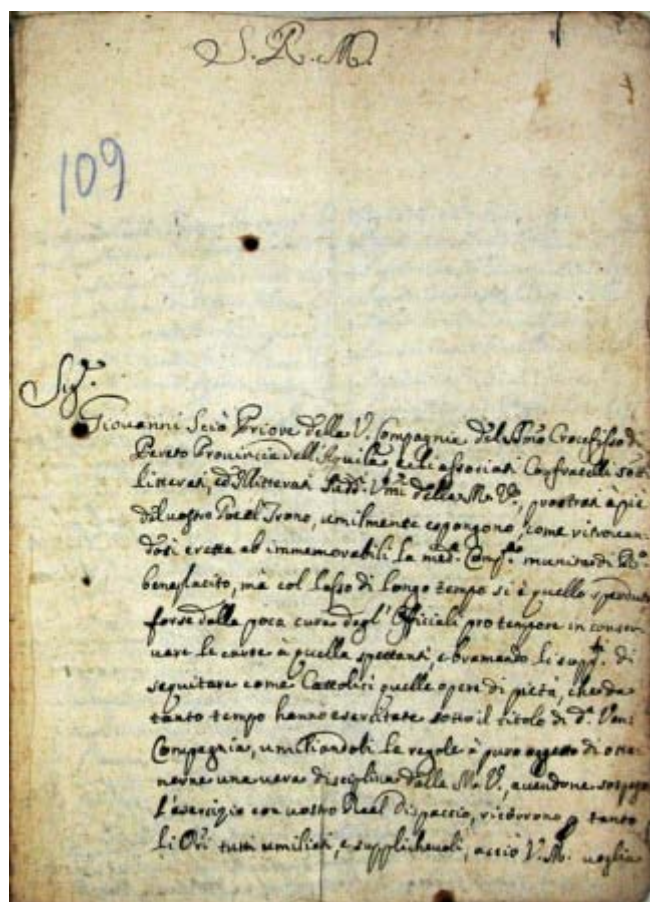 S. R. M.
109
Sig.re
Giovanni Sciò Priore della V. Compagnia del SS.mo Crocefisso di
Pereto Provincia dell'Aquila, e li associati Confratelli sotto
litterati, ed Illitterati V.mi della M. V., prostrati à piè
del vostro Real Trono, umilmente espongono, come ritrovan
dosi eretta ab immemorabili la med.a munita di R.o
beneplacito, mà col lasso di longo tempo si è quello sperduto
forse dalla poca cura degl' Officiali pro tempore in conser
vare le carte à quella spettanti, e bramando li supp.ti di
seguitare come Cattolici quelle opere di pietà, che da
tanto tempo hanno esercitate sotto il titolo di d.a Ven.
Compagnia, umiliandoli le regole à puro oggetto di otte
nerne una vera disciplina dalla M. V., avendone sospeso
l'esercizio con vostro Real Dispaccio, ricorrono tanto
li Ori tutti umiliati, e supplichevoli, acciò V. M. voglia